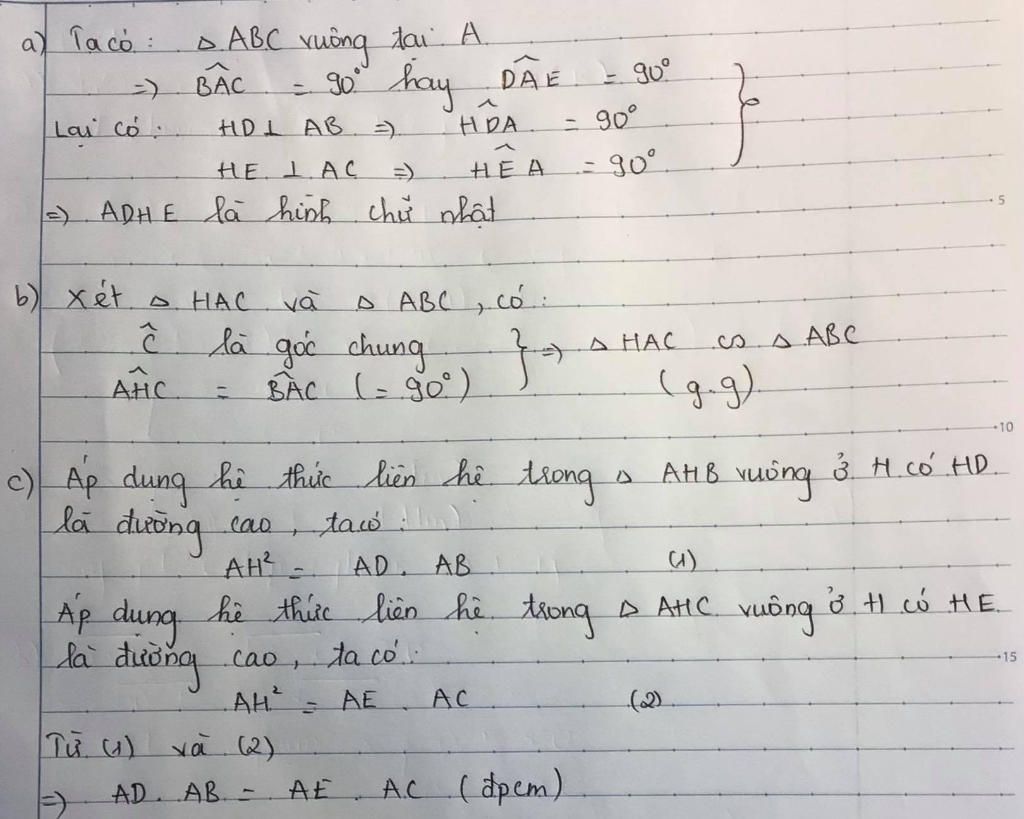 a) Ta có : △ ABC vuông tại A
=> BÂC = 90° hay DÂE = 90°
Lại có : HD ⊥ AB => HD̂A = 90°
HE ⊥ AC => HÊA = 90°
=> ADHE là hình chữ nhật
5
b) Xét △ HAC và △ ABC, có :
Ĉ là góc chung } => △ HAC ∽ △ ABC
AĤC = BÂC (= 90°) (g.g)
10
c) Áp dụng hệ thức liên hệ trong △ AHB vuông ở H có HD
là đường cao, ta có :
AH² = AD . AB (1)
Áp dụng hệ thức liên hệ trong △ AHC vuông ở H có HE
là đường cao, ta có :
15
AH² = AE . AC (2)
Từ (1) và (2)
=> AD . AB = AE . AC (đpcm)